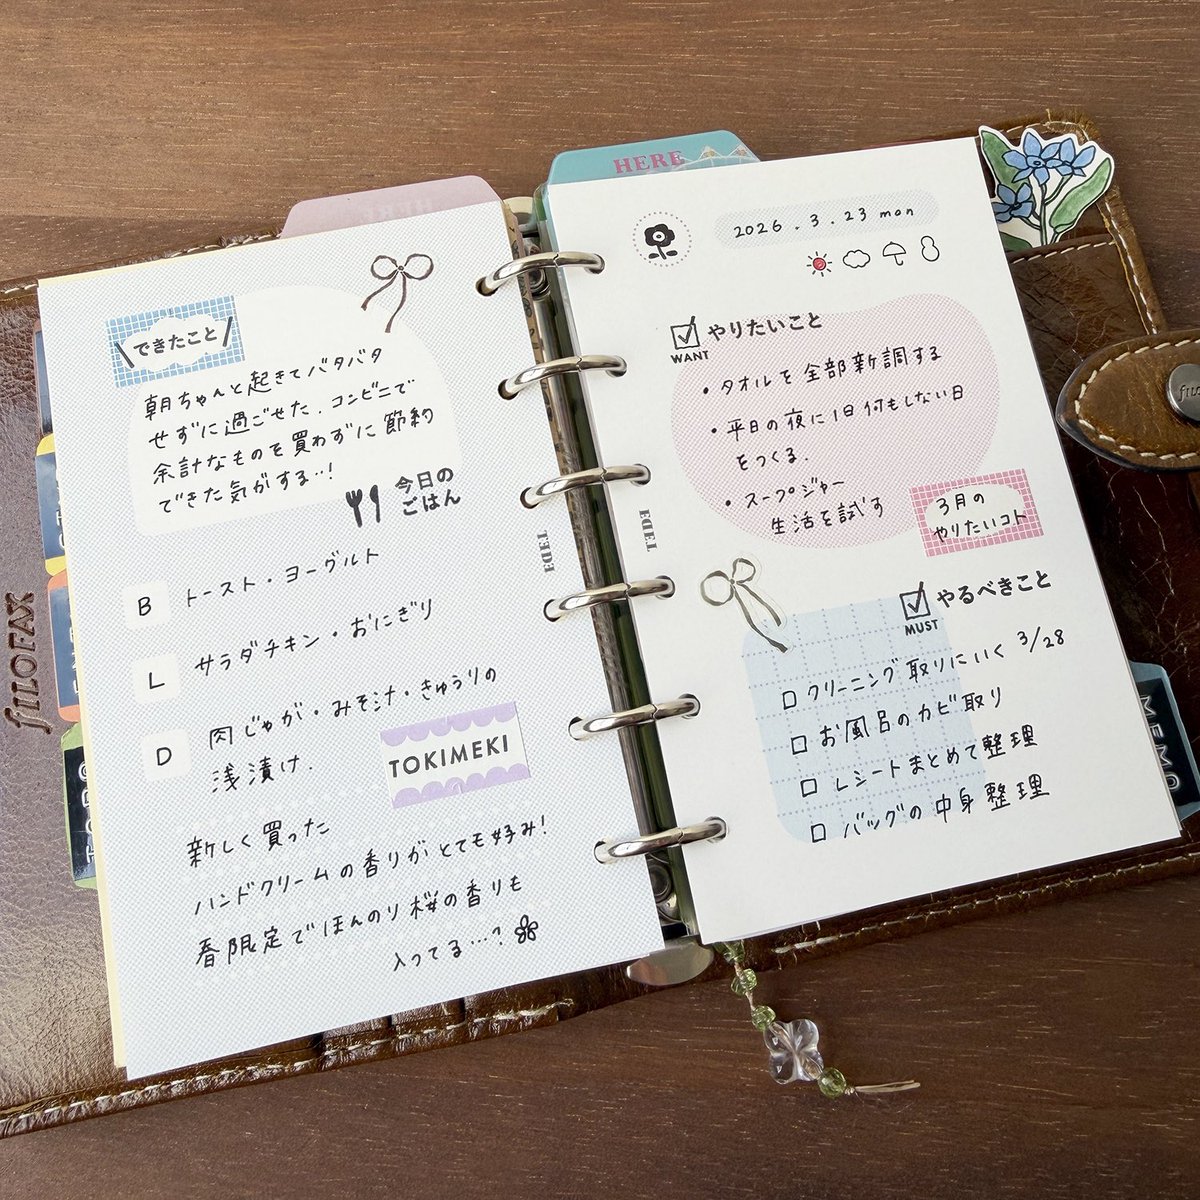 できたこと
朝ちゃんと起きてバタバタ
せずに過ごせた．コンビニで
余計なものを買わずに節約
できた気がする…！
今日の
ごはん
B トースト・ヨーグルト
L サラダチキン・おにぎり
D 肉じゃが・みそ汁・きゅうりの
浅漬け．
TOKIMEKI
新しく買った
ハンドクリームの香りがとても好み！
春限定でほんのり桜の香りも
入ってる…？
TED3
HERE
2026．3．23 mon
WANT やりたいこと
・タオルを全部新調する
・平日の夜に1日何もしない日
をつくる．
・スープジャー
生活を試す
3月の
やりたいコト
TED3
MUST やるべきこと
□ クリーニング取りにいく 3/28
□ お風呂のカビ取り
□ レシートまとめて整理
□ バッグの中身整理
MEMO
filofax